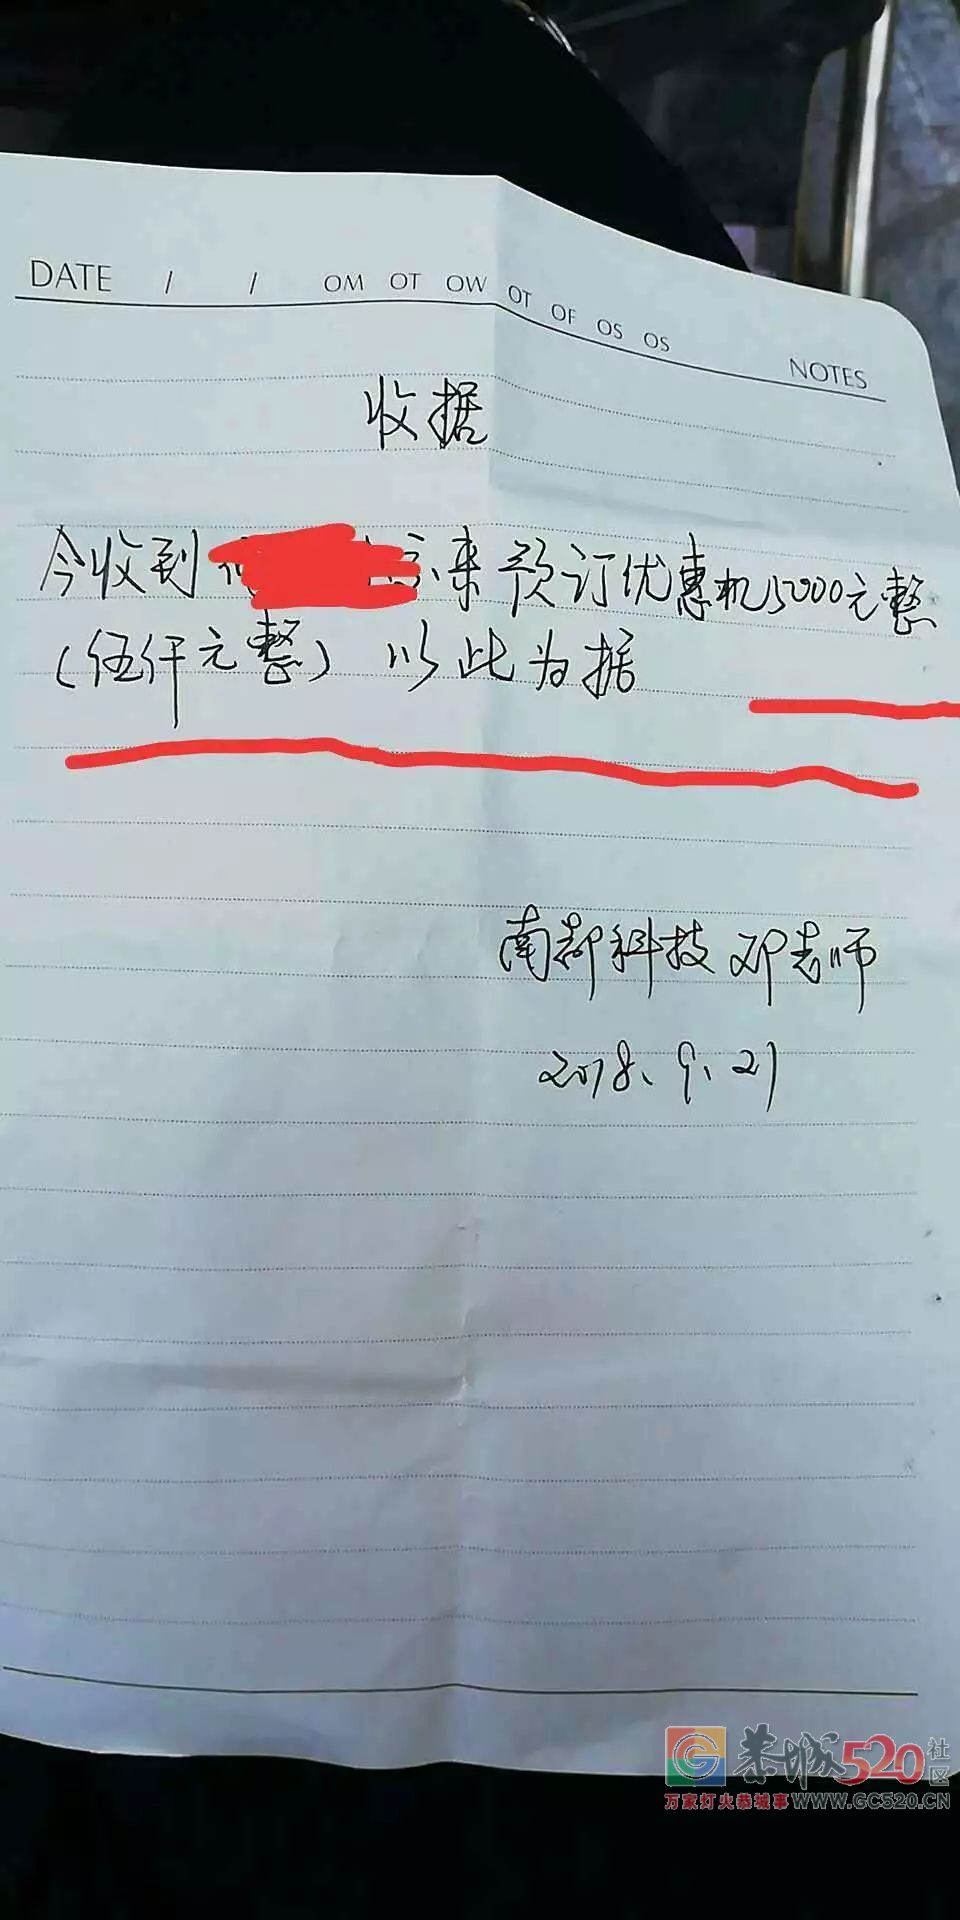 DATE / / OM OT OW OT OF OS OS NOTES
收据
今收到 来预订优惠机5000元整
(伍仟元整) 以此为据
南都科技 邓老师
2018、9、21
恭城520社区
万家灯火恭城事WWW.GC520.CN